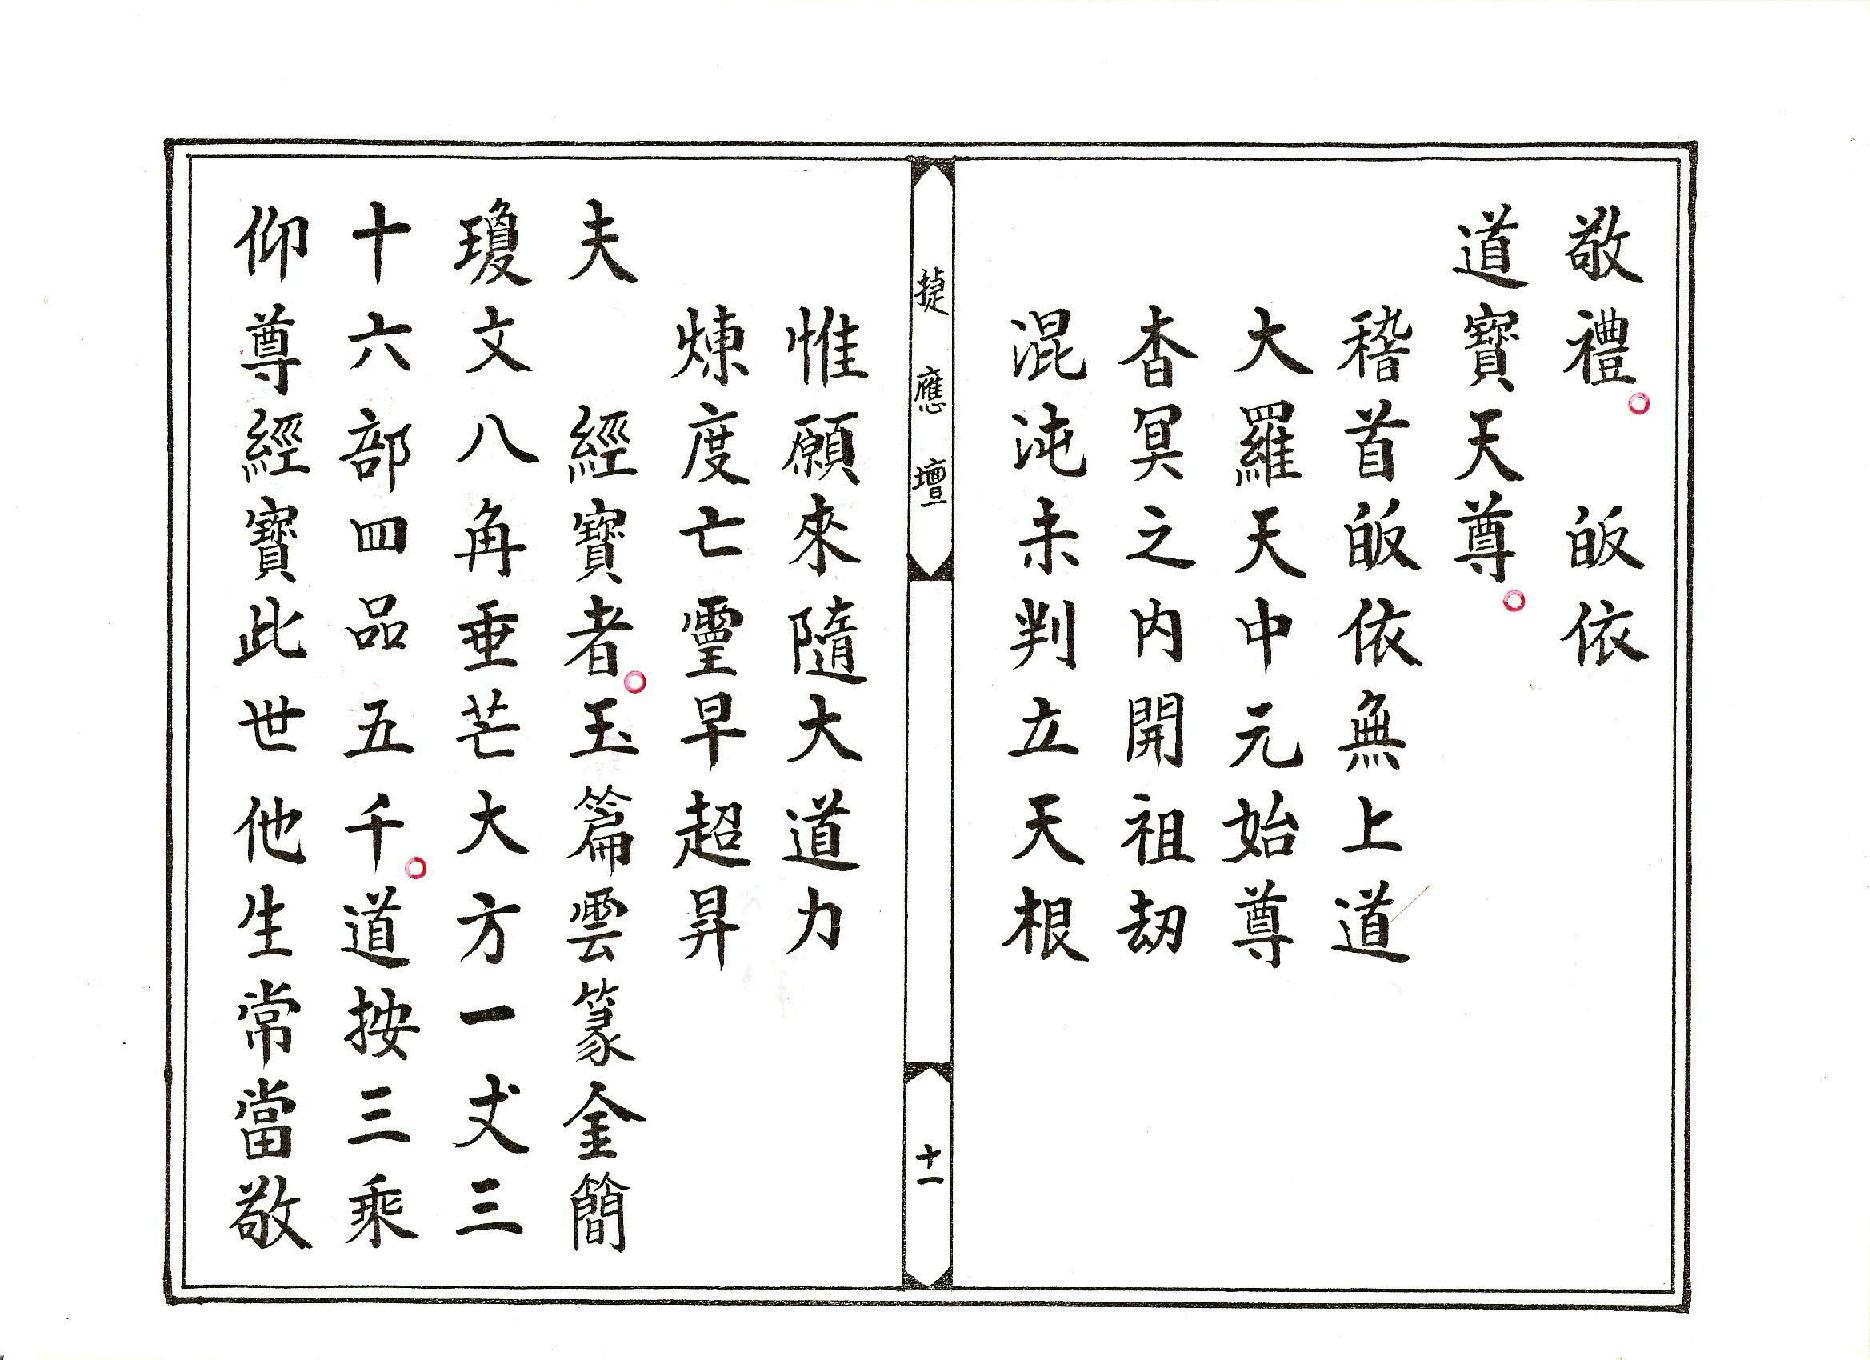 敬禮。　皈依
道寶天尊。
稽首皈依無上道
大羅天中元始尊
杳冥之内開祖劫
混沌未判立天根
捷應壇
十一
惟願來隨大道力
煉度亡靈早超昇
夫　經寶者。玉篇雲篆金簡
瓊文八角垂芒大方一丈三
十六部四品五千。道按三乘
仰尊經寶此世他生常當敬